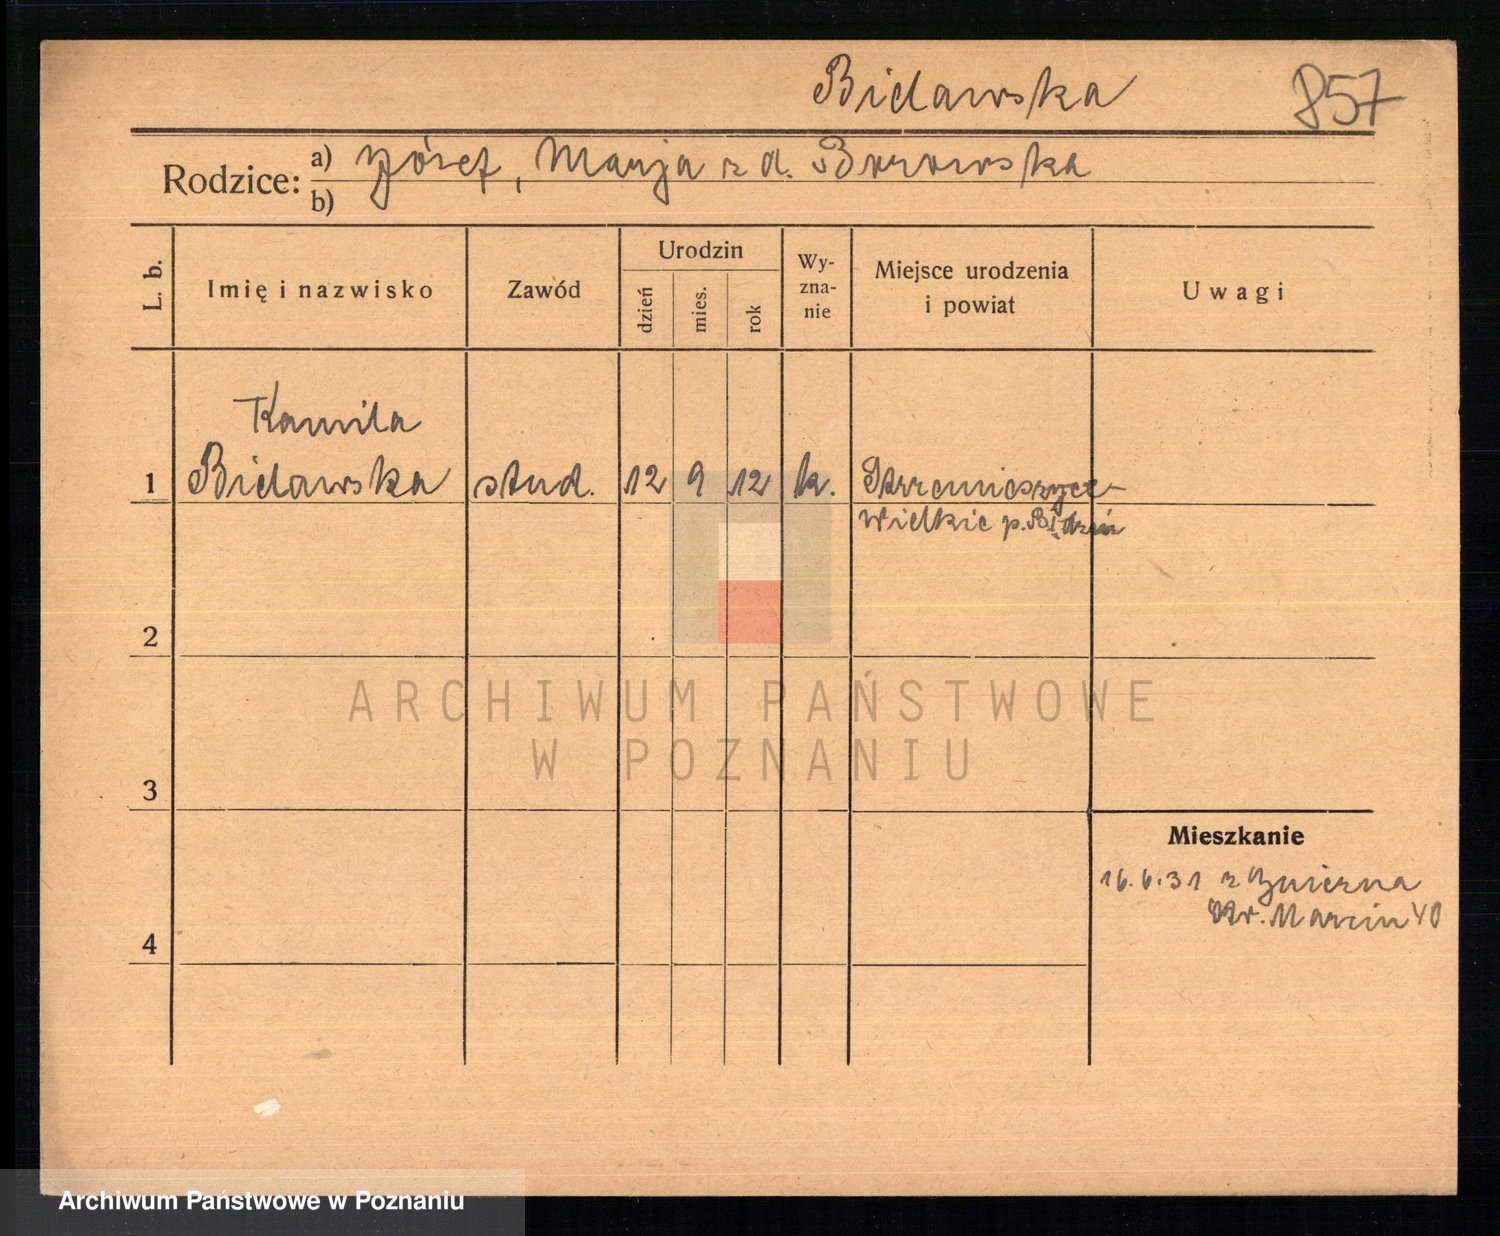 Bielawska 857
Rodzice: a) Józef, Marja z d. Borowska
b)
L. b. Imię i nazwisko Zawód Urodzin dzień mies. rok Wy-zna-nie Miejsce urodzenia i powiat Uwagi
Kamila
1 Bielawska stud. 12 9 12 k. Strzemieszyce-
Wielkie p.
2
3
Mieszkanie
16.6.31 z
Marcin 40
4
ARCHIWUM PAŃSTWOWE
W POZNANIU
Archiwum Państwowe w Poznaniu